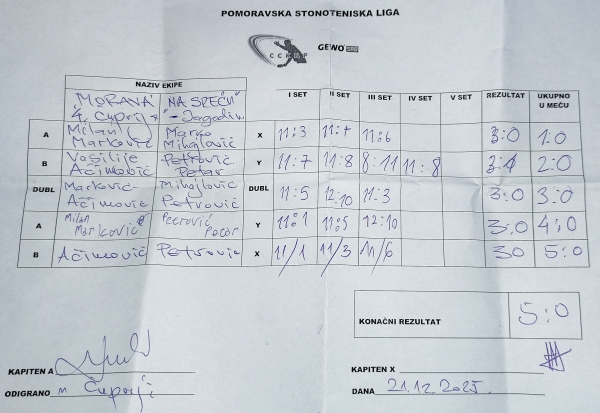 POMORAVSKA STONOTENISKA LIGA
GEWO
NAZIV EKIPE
I SET II SET III SET IV SET V SET REZULTAT UKUPNO U MEČU
"MORAVA" "NA SPEĆU"
Ćuprija - Jagodin
A Milan Marković Marko Mihajlović X 11:3 11:7 11:6 3:0 1:0
B Vasilije Aćimović Petrović Petar Y 11:7 11:8 8:11 11:8 3:1 2:0
DUBL Marković Aćimović Mihajlović Petrović DUBL 11:5 12:10 11:3 3:0 3:0
A Milan Marković Petrović Petar Y 11:1 11:5 12:10 3:0 4:0
B Aćimović Petrović X 11/1 11/3 11/6 30 5:0
KONAČNI REZULTAT 5:0
KAPITEN A KAPITEN X
ODIGRANO u Ćupriji DANA 21.12.2025.